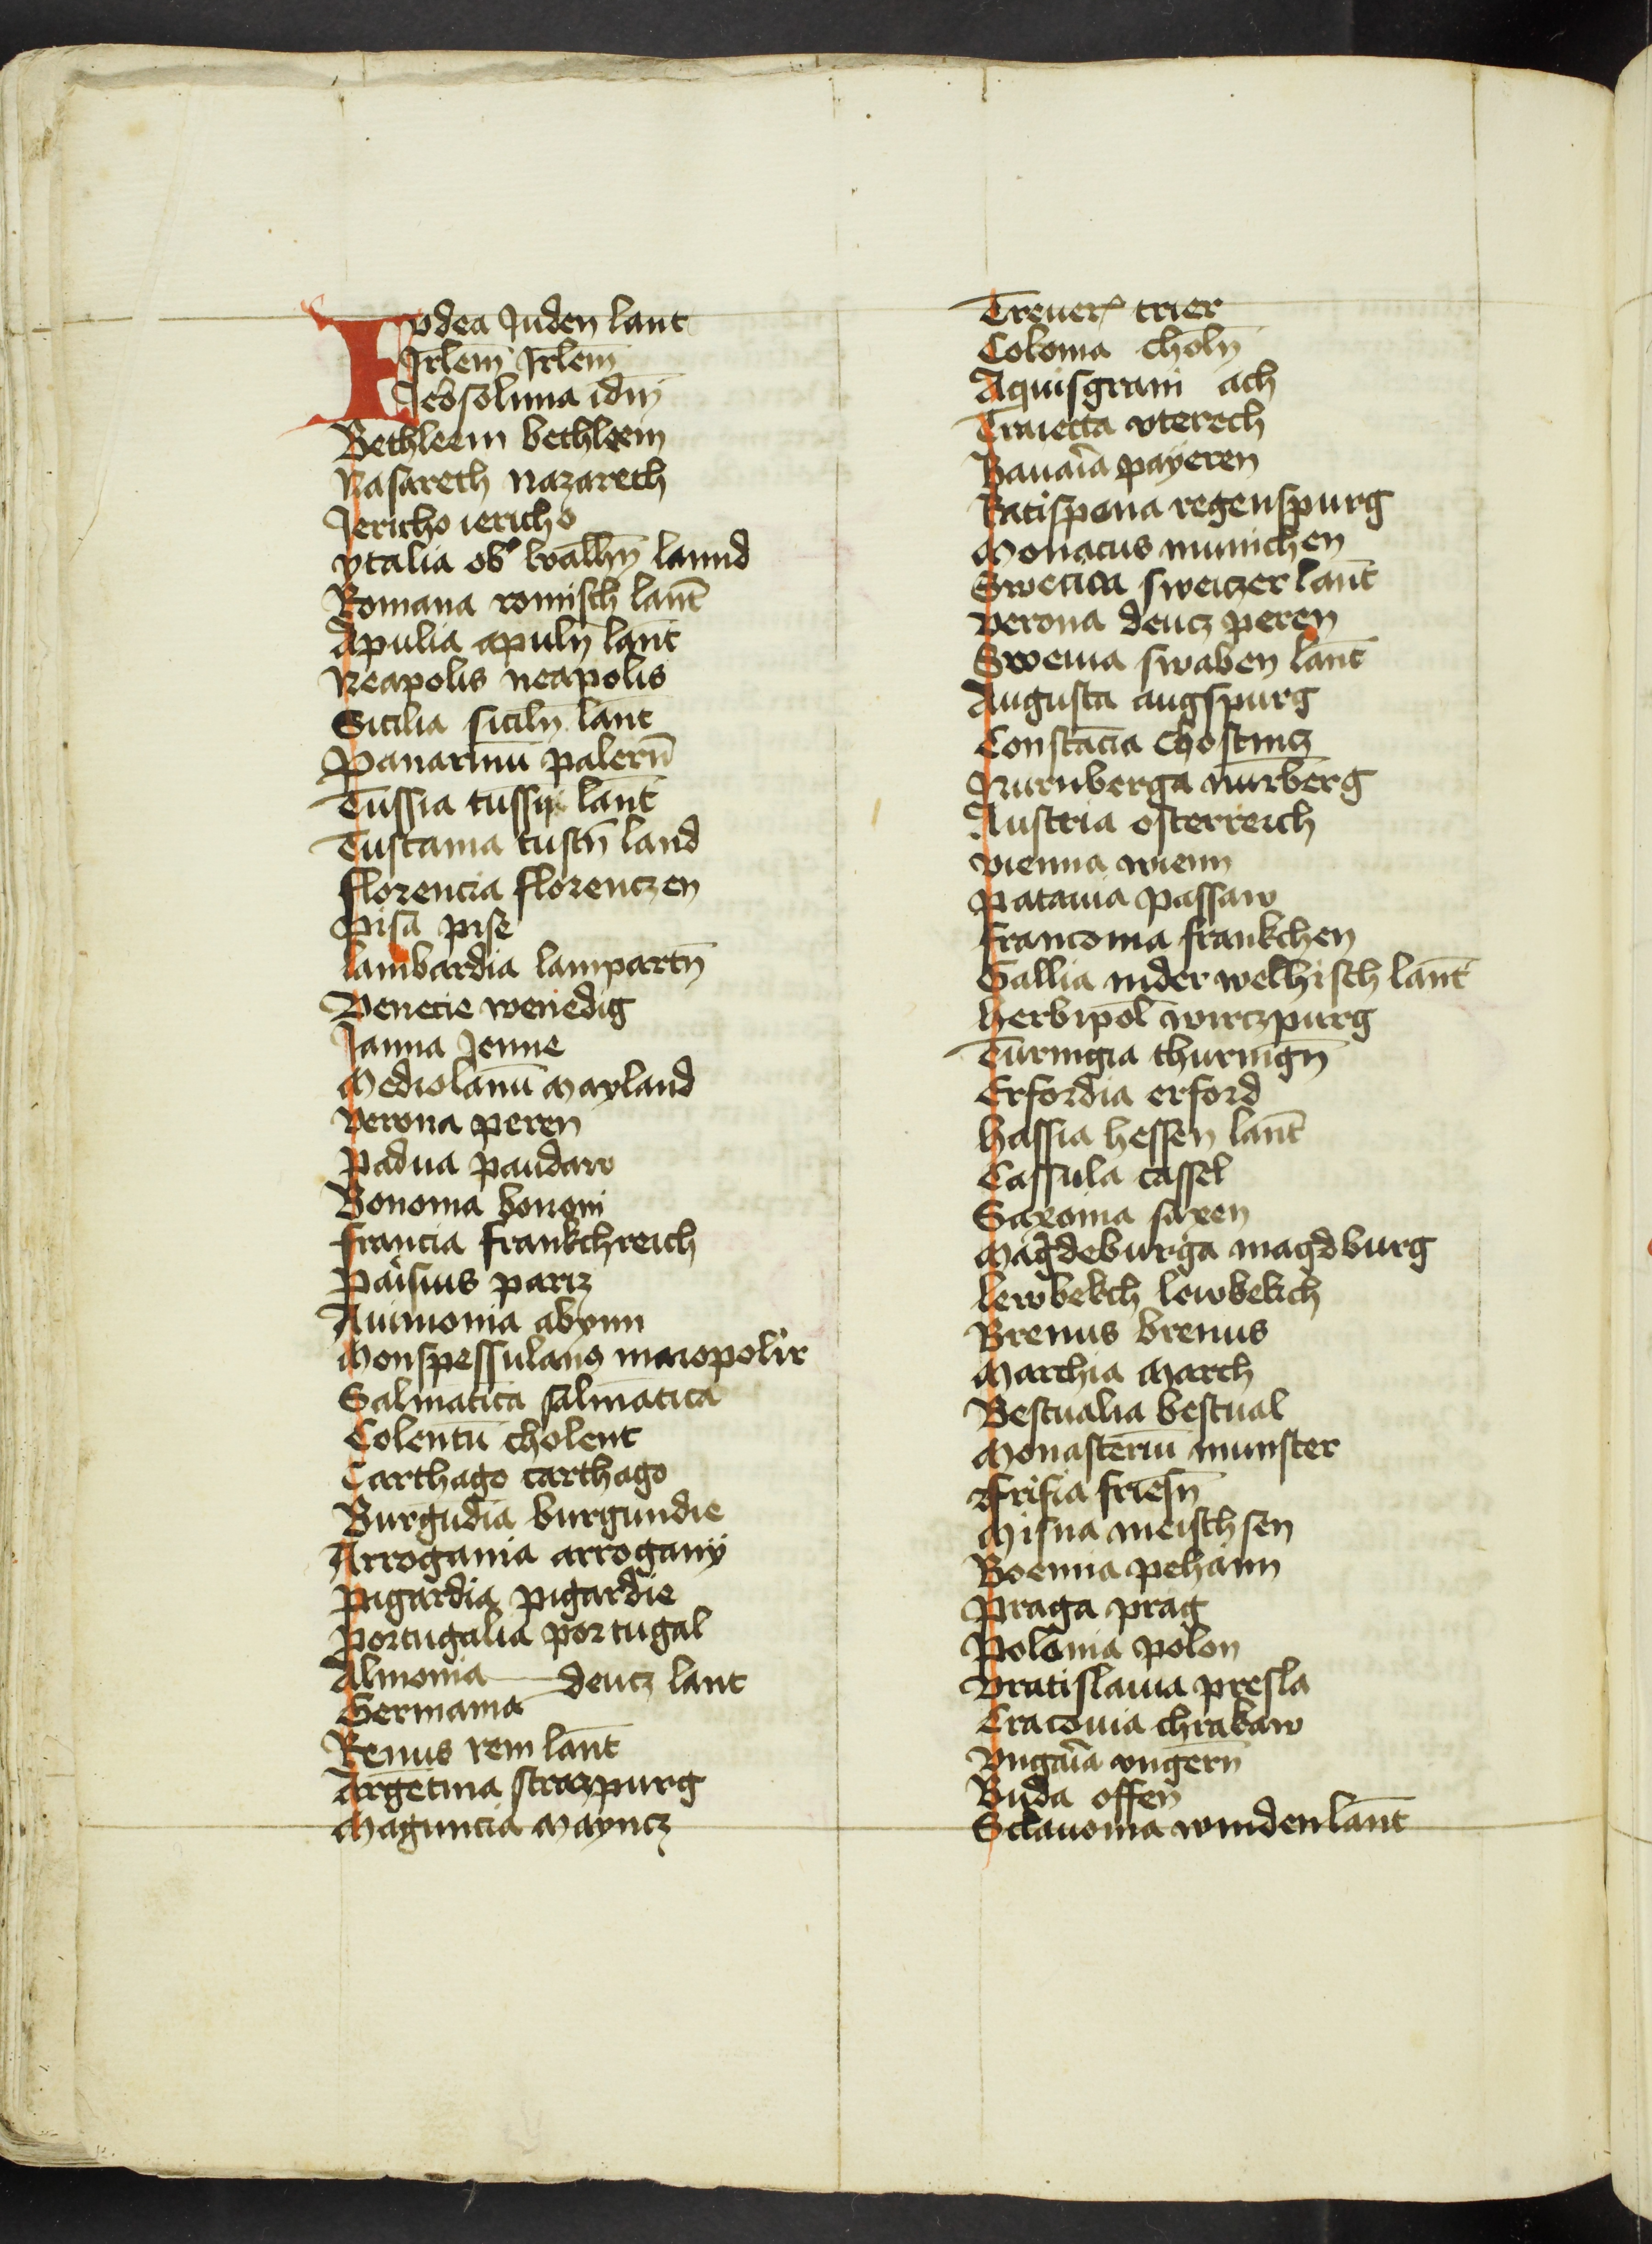 Iudea Juden lant
Jrlem̄ Jrlem̄
Jeŕsolima idm̄
Bethleem bethleem
Nasareth nazareth
Jericho iericho
ytalia obᵉ walhn̄ lannd
Romana romisch lant̄
Apulia apuln̄ lant̄
Neapolis neapolis
Sicilia siciln̄ lant̄
Panarmū palern̄
Tussia tussin lant̄
Tuscania tuscn̄ land
florencia florenczen
pisa pise
lambardia lampartn̄
Venecie wenedig
Janua Jenne
Mediolanū Mayland
verona peren
padua paudaw
Bononia bononi
francia frankchreich
paisius pariz
Auinonia abynn
Monspessulanꝰ mareopolir
Salmatica salmatica
Colentū cholent
Carthago carthago
Burgūdia burgundie
Arrogania arrogany
pigardia pigardie
portugalia portugal
Almonia
Germania deucz lant
Renus rein lant̄
Argētina straczpurg
Maguncia Mayncz
Treuerꝭ trier
Colonia choln̄
Aquisgrani ach
Traiecta vterech
Bauaīa payeren
Ratispona regenspurg
Monacus munichen
Swecica sweiczer lant̄
verona deucz peren
Sweuia swaben lant̄
Augusta augspurg
Constācia Chostnicz
Nurnberga nurberg
Austria osterreich
vienna wienn
patauia passaw
franconia frankchen
Gallia nider welhisch lant̄
herbipol̄ wirczpurg
Turingia thuringn̄
Erfordia erford
hassia hessen lant̄
Cassula cassel
Saxonia saxen
Magdeburga magdburg
lewbekch lewbekch
Bremis bremis
Marchia March
Bestualia bestual
Monasteriū munster
ffrisia friesn̄
Misna meischsen
Boemia pehaim
praga prag
polonia polon
vratislauia presla
Cracouia chrakaw
vngaīa vngern̄
Buda offen
Sclauonia windenlant̄